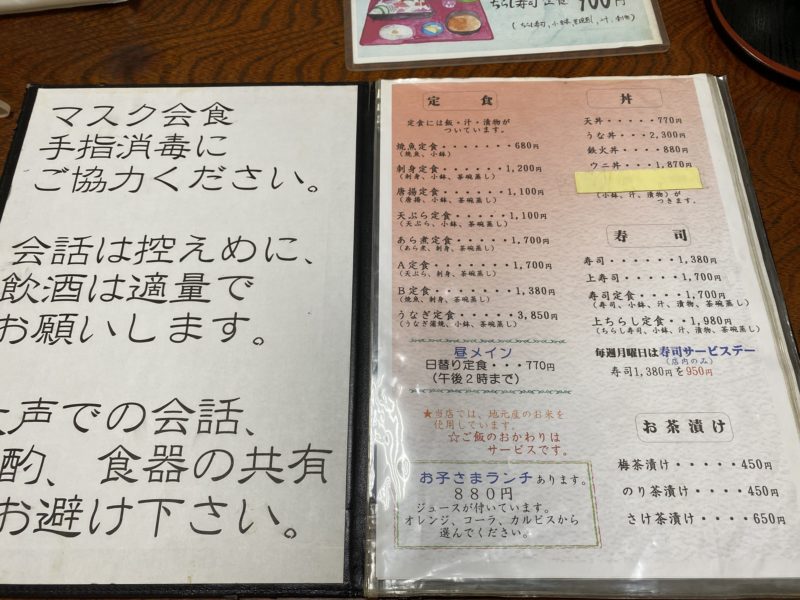 マスク会食
手指消毒に
ご協力ください。
会話は控えめに、
飲酒は適量で
お願いします。
大声での会話、
酌、食器の共有
お避け下さい。
ちらし寿司定食 900円
定食
定食には飯・汁・漬物が
ついています。
焼魚定食・・・・・・・680円
(焼魚、小鉢)
刺身定食・・・・・1,200円
(刺身、小鉢、茶碗蒸し)
唐揚定食・・・・・1,100円
(唐揚、小鉢、茶碗蒸し)
天ぷら定食・・・・1,100円
(天ぷら、小鉢、茶碗蒸し)
あら煮定食・・・・1,700円
(あら煮、刺身、茶碗蒸し)
A定食・・・・・・1,700円
(天ぷら、刺身、茶碗蒸し)
B定食・・・・・・1,380円
(焼魚、刺身、茶碗蒸し)
うなぎ定食・・・・3,850円
(うなぎ蒲焼、小鉢、茶碗蒸し)
昼メイン
日替り定食・・・770円
(午後2時まで)
★当店では、地元産のお米を
使用しています。
☆ご飯のおかわりは
サービスです。
お子さまランチあります。
880円
ジュースが付いています。
オレンジ、コーラ、カルピスから
選んでください。
丼
天丼・・・・・770円
うな丼・・・・2,300円
鉄火丼・・・・880円
ウニ丼・・・1,870円
(小鉢、汁、漬物)が
つきます。
寿司
寿司・・・・・・1,380円
上寿司・・・・・1,700円
寿司定食・・・・1,700円
(寿司、小鉢、汁、漬物、茶碗蒸し)
上ちらし定食・・1,980円
(ちらし寿司、小鉢、汁、漬物、茶碗蒸し)
毎週月曜日は寿司サービスデー
(店内のみ)
寿司1,380円を950円
お茶漬け
梅茶漬け・・・・・450円
のり茶漬け・・・・450円
さけ茶漬け・・・・650円